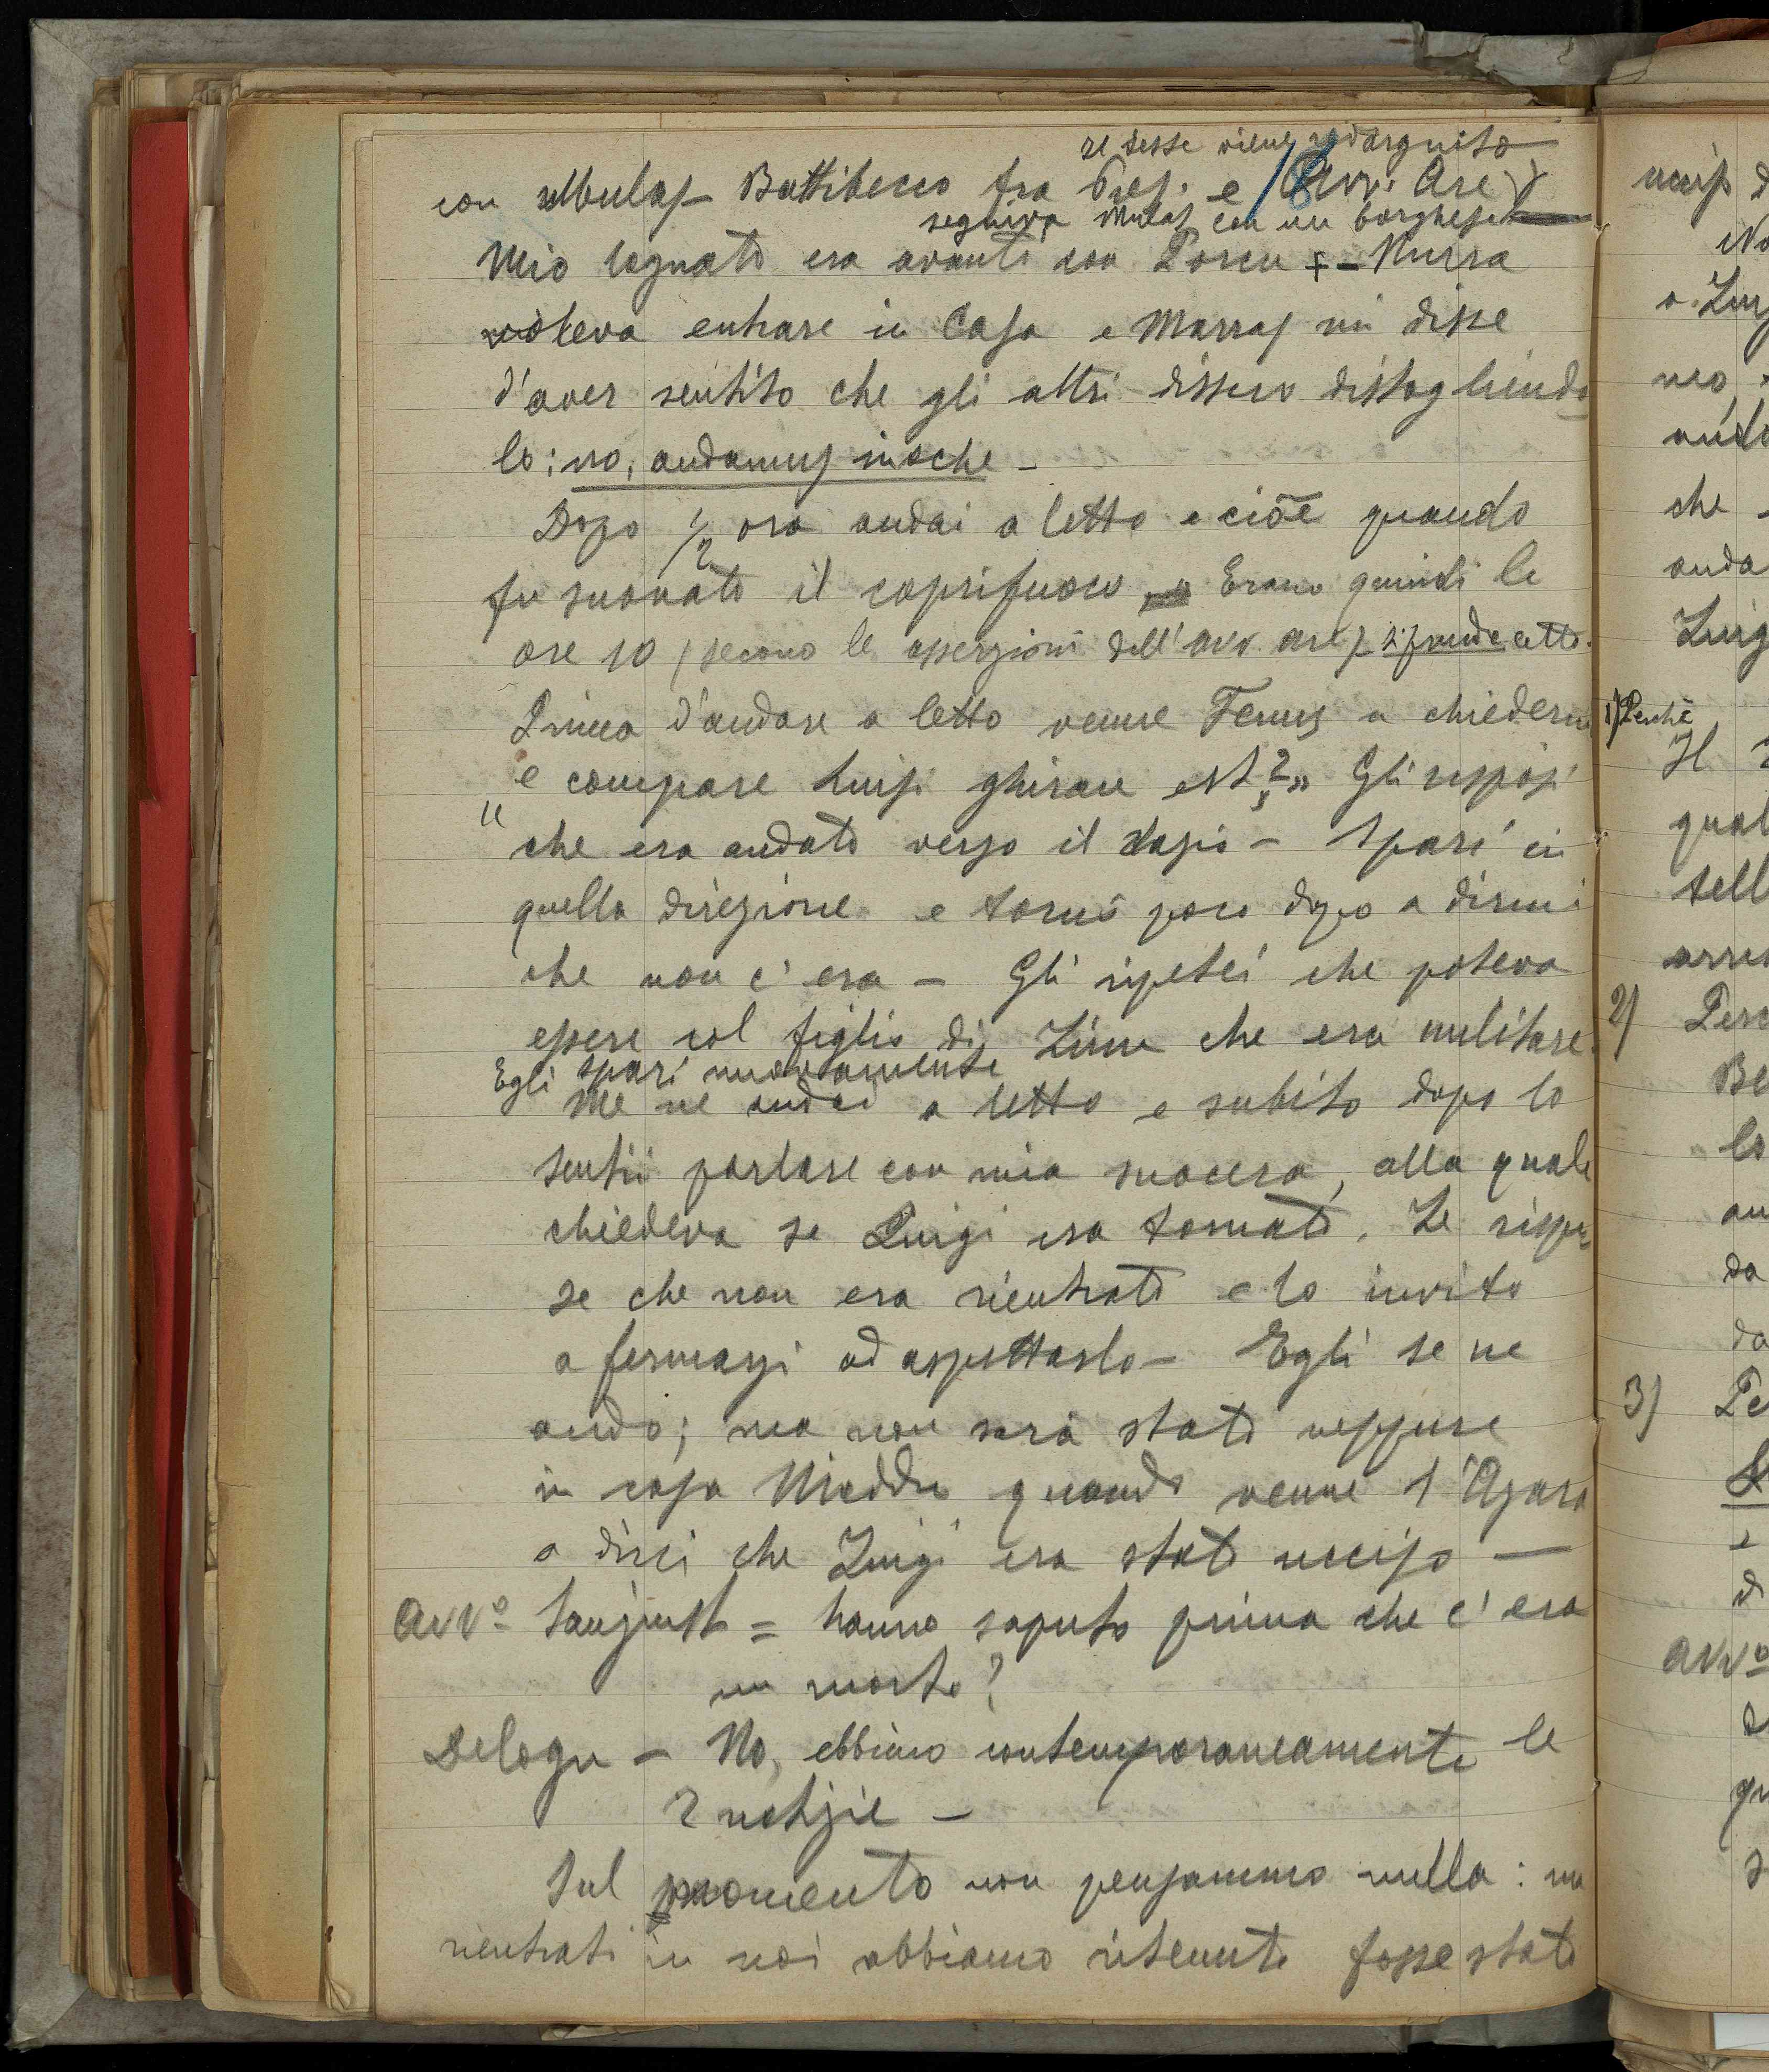 se stesse viene redarguito
con Mulas - Battibecco fra Pres. e Avv. Are
seguiva Mulas con un borghese
Mio cognato era avanti con Porcu + - Murra
voleva entrare in Casa e Marras mi disse
d'aver sentito che gli altri dissero distogliendo
lo: no, andamus inoche -
Dopo 1/2 ora andai a letto e cioè quando
fu suonato il coprifuoco Erano quindi le
ore 10 (secono le asserzioni dell'avv. are)
Prima d'andare a letto venne Fenus a chiedermi
" e compare Luigi ghirau est? " Gli risposi
che era andato verso il Dazio - Sparì in
quella direzione e tornò poco dopo a dirmi
che non c'era - Gli ripetei che poteva
essere col figlio di Zinu che era militare.
Egli sparì nuovamente
Me ne andai a letto e subito dopo lo
sentii parlare con mia suocera, alla quale
chiedeva se Luigi era tornato. Le rispo
se che non era rientrato e lo invito
a fermarsi ad aspettarlo - Egli se ne
andò; ma non sarà stato neppure
in casa Nieddu quando venne l'Azara
a dirci che Luigi era stato ucciso -
Avvo Sanjust = hanno saputo prima che c'era
un morto?
Delogu - No, ebbimo contemporaneamente le
2 notizie -
Sul momento non pensammo nulla: ma
rientrati in noi abbiamo ritenuto fosse stato
uccis d
No
a Luig
che
anda
Luig
1) Perchè
Il
qual
2)
Be
lo
da
3) Pe
Avvo